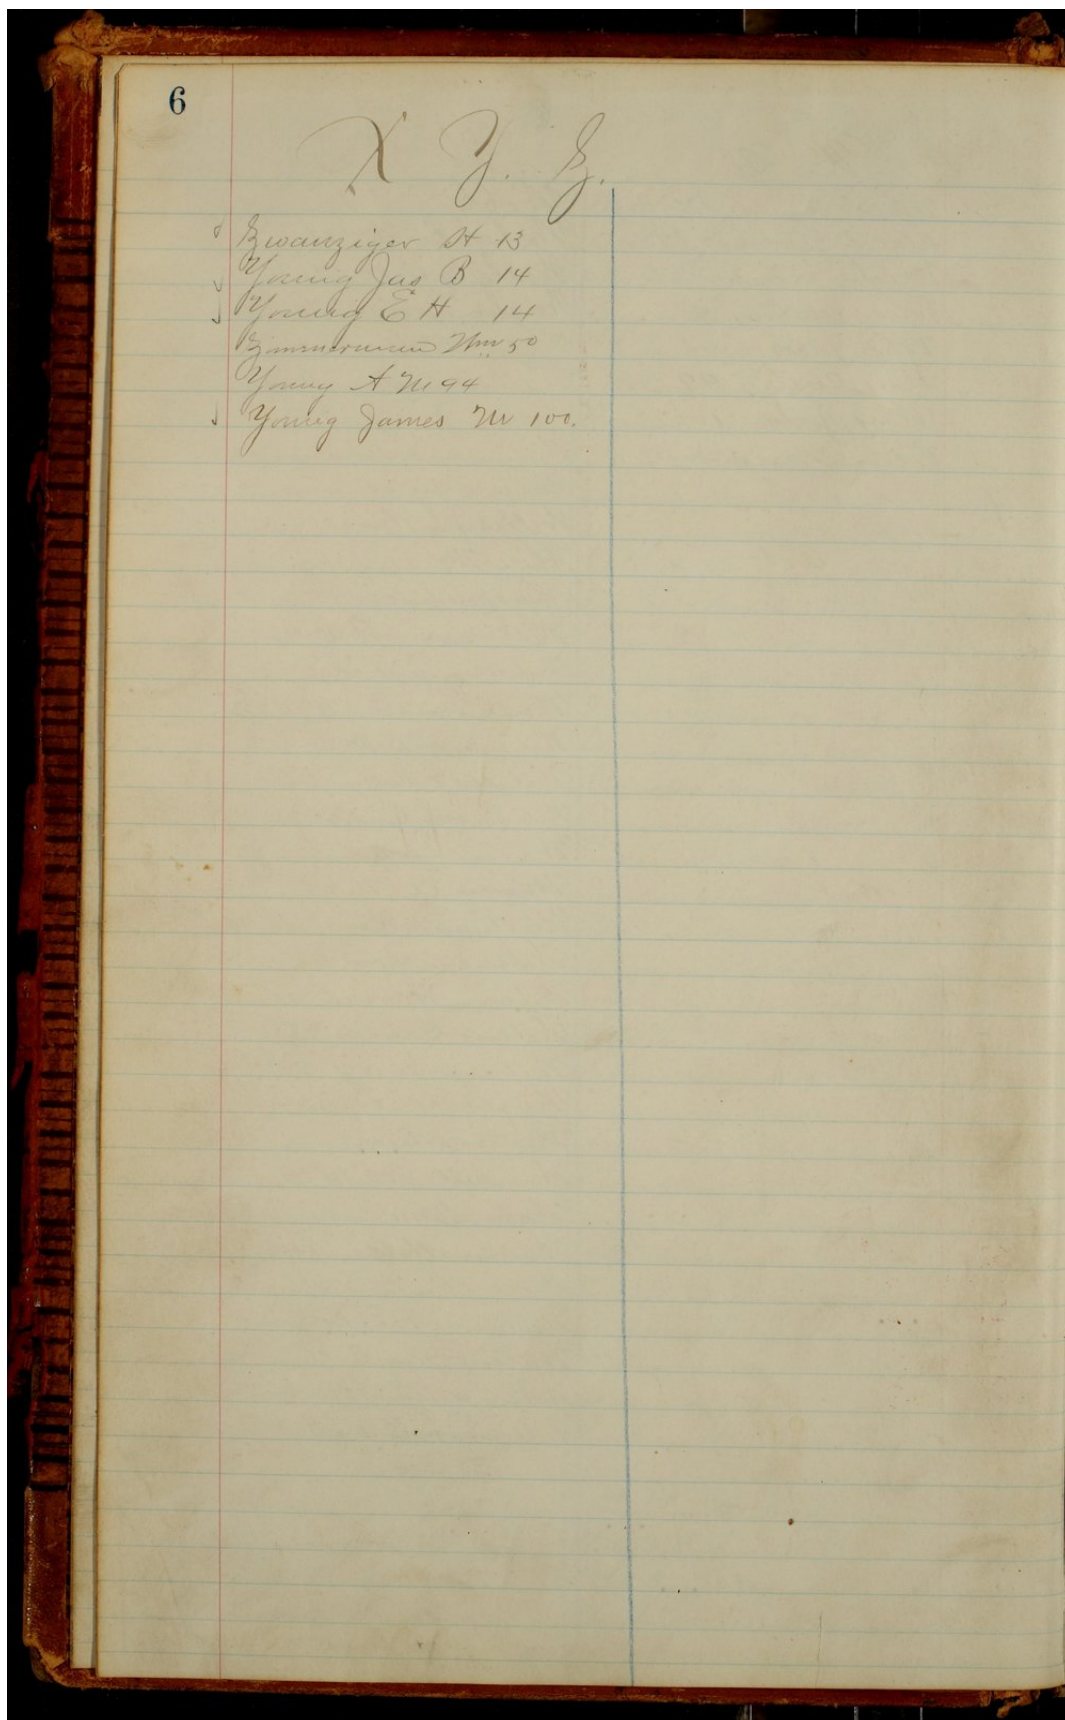 6
X Y. Z.
Zwanziger H 13
Young Jas B 14
Young E H 14
Zimmerman Wm 50
Young A M 94
Young James M 100.